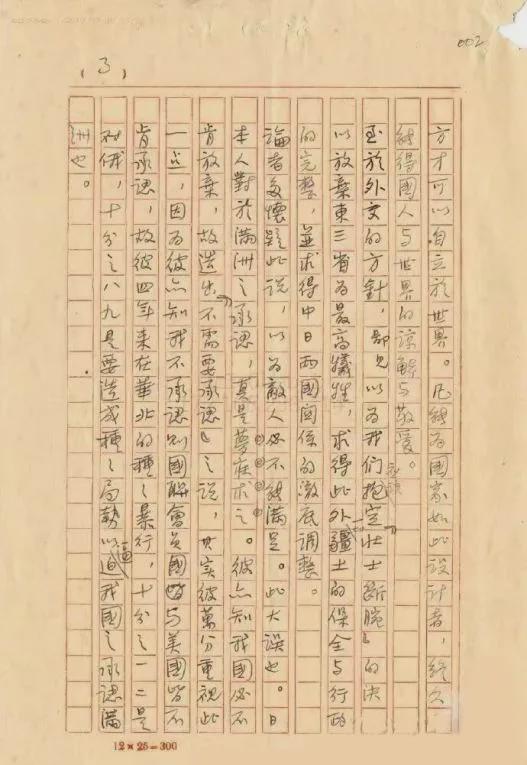 002
(3)
方才可以自立於世界。凡能為國家如此設計者,終久
能得國人與世界的諒解與敬愛。
至於外交的方針,鄙見以為我們應抱定「壯士斷腕」的決
以放棄東三省為最高犧牲,求得此外疆土的保全與行政
的完整,並求得中日兩國關係的徹底調整。
論者多懷疑此說,以為敵人必不能滿足。此大誤也。日
本人對於滿洲之承認,真是夢寐求之。彼亦知我國必不
肯放棄,故造出「不需要承認」之說,其實彼萬分重視此
一點,因為彼亦知我不承認則國聯會員國與美國皆不
肯承認,故彼四年來在華北的種種暴行,十分之一二是
對俄,十分之八九是要造成種種局勢以逼我國之承認滿
洲也。
12×25=300